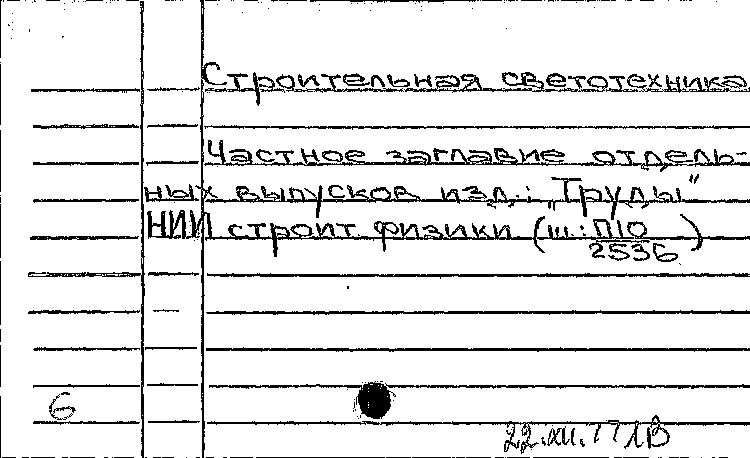 Строительная светотехника
Частное заглавие отдель-
ных выпусков изд.: „Труды"
НИИ строит физики (ш.: П10
2536)
6
22.XII.77 ЛВ